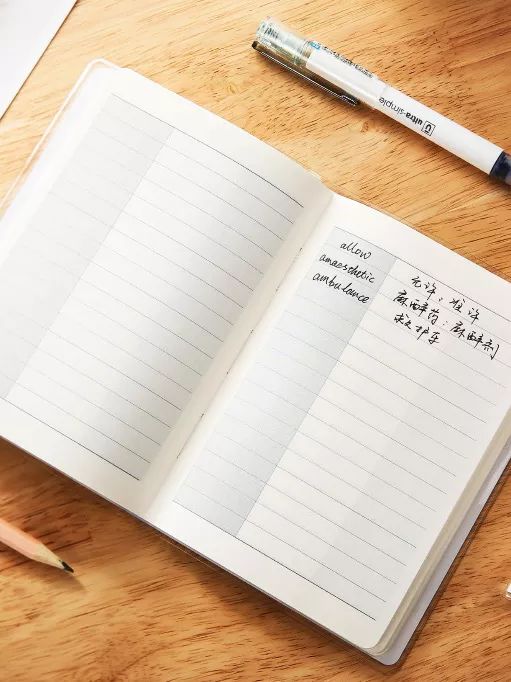 ultra-simple
allow
anaesthetic
ambulance
允许；准许
麻醉药；麻醉剂
救护车